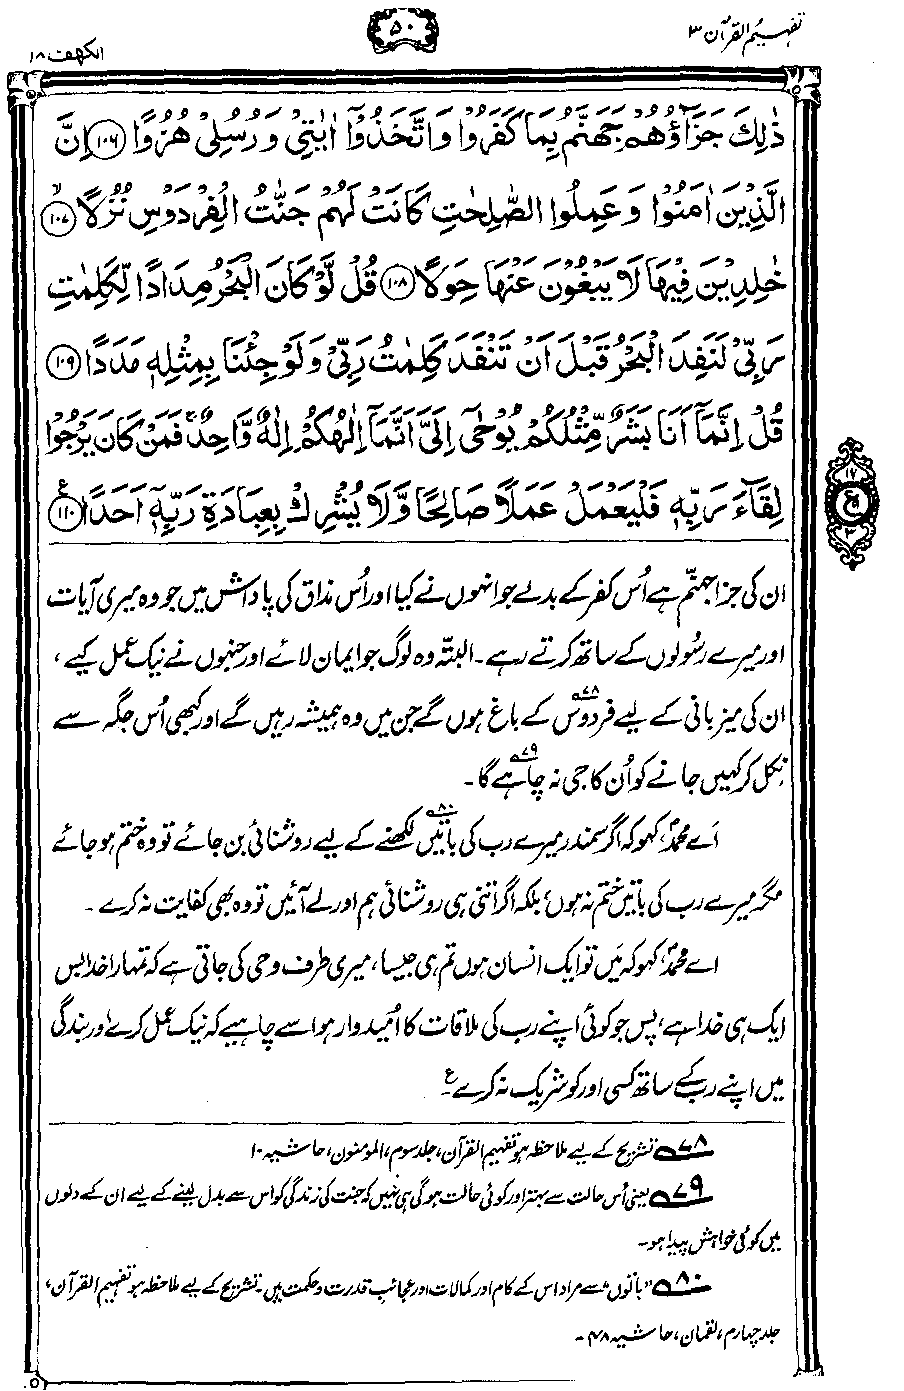 تفہیم القرآن ۳
۵۰
الکہف ۱۸
ذٰلِكَ جَزَآؤُهُمْ جَهَنَّمُ بِمَا كَفَرُوْا وَاتَّخَذُوْٓا اٰيٰتِيْ وَرُسُلِيْ هُزُوًا ﴿۱۰۶﴾ اِنَّ
الَّذِيْنَ اٰمَنُوْا وَعَمِلُوا الصّٰلِحٰتِ كَانَتْ لَهُمْ جَنّٰتُ الْفِرْدَوْسِ نُزُلًا ﴿۱۰۷﴾ۙ
خٰلِدِيْنَ فِيْهَا لَا يَبْغُوْنَ عَنْهَا حِوَلًا ﴿۱۰۸﴾ قُلْ لَّوْ كَانَ الْبَحْرُ مِدَادًا لِّكَلِمٰتِ
رَبِّيْ لَنَفِدَ الْبَحْرُ قَبْلَ اَنْ تَنْفَدَ كَلِمٰتُ رَبِّيْ وَلَوْ جِئْنَا بِمِثْلِهٖ مَدَدًا ﴿۱۰۹﴾
قُلْ اِنَّمَآ اَنَا بَشَرٌ مِّثْلُكُمْ يُوْحٰٓى اِلَيَّ اَنَّمَآ اِلٰهُكُمْ اِلٰهٌ وَّاحِدٌ ۚ فَمَنْ كَانَ يَرْجُوْا
لِقَآءَ رَبِّهٖ فَلْيَعْمَلْ عَمَلًا صَالِحًا وَّلَا يُشْرِكْ بِعِبَادَةِ رَبِّهٖٓ اَحَدًا ﴿۱۱۰﴾ ع
۱۲
ع
۳
ان کی جزا جہنّم ہے اُس کفر کے بدلے جو انہوں نے کیا اور اُس مذاق کی پاداش میں جو وہ میری آیات
اور میرے رسُولوں کے ساتھ کرتے رہے۔ البتّہ وہ لوگ جو ایمان لائے اور جنہوں نے نیک عمل کیے،
ان کی میزبانی کے لیے فردوس۷۸ کے باغ ہوں گے جن میں وہ ہمیشہ رہیں گے اور کبھی اُس جگہ سے
نِکل کر کہیں جانے کو اُن کا جی نہ چاہے گا۷۹۔
اَے محمدؐ، کہو کہ اگر سمندر میرے رب کی باتیں۸۰ لکھنے کے لیے روشنائی بن جائے تو وہ ختم ہو جائے
مگر میرے رب کی باتیں ختم نہ ہوں، بلکہ اگر اتنی ہی روشنائی ہم اور لے آئیں تو وہ بھی کفایت نہ کرے۔
اے محمدؐ، کہو کہ مَیں تو ایک انسان ہوں تم ہی جیسا، میری طرف وحی کی جاتی ہے کہ تمہارا خدا بس
ایک ہی خدا ہے، پس جو کوئی اپنے رب کی ملاقات کا اُمیدوار ہو اسے چاہیے کہ نیک عمل کرے اور بندگی
میں اپنے رب کے ساتھ کسی اور کو شریک نہ کرے۔ ع
۷۸ تشریح کے لیے ملاحظہ ہو تفہیم القرآن، جلد سوم، المومنون، حاشیہ ۱۰
۷۹ یعنی اُس حالت سے بہتر اور کوئی حالت ہوگی ہی نہیں کہ جنت کی زندگی کو اس سے بدل لینے کے لیے ان کے دلوں
میں کوئی خواہش پیدا ہو۔
۸۰ ”باتوں“ سے مراد اس کے کام اور کمالات اور عجائبِ قدرت و حکمت ہیں۔ تشریح کے لیے ملاحظہ ہو تفہیم القرآن،
جلد چہارم، لقمان، حاشیہ ۴۸۔